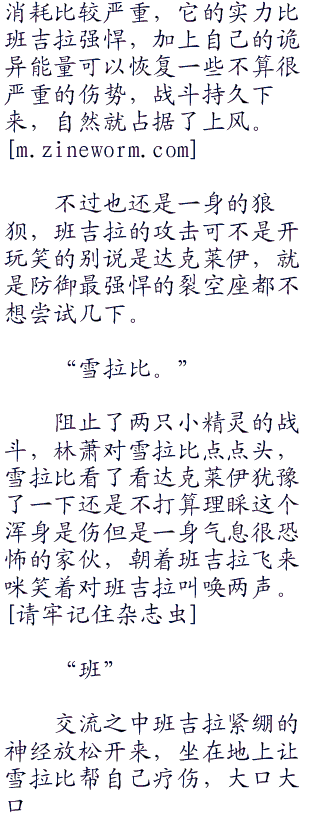 消耗比较严重，它的实力比
班吉拉强悍，加上自己的诡
异能量可以恢复一些不算很
严重的伤势，战斗持久下
来，自然就占据了上风。
[m.zineworm.com]
不过也还是一身的狼
狈，班吉拉的攻击可不是开
玩笑的别说是达克莱伊，就
是防御最强悍的裂空座都不
想尝试几下。
“雪拉比。”
阻止了两只小精灵的战
斗，林萧对雪拉比点点头，
雪拉比看了看达克莱伊犹豫
了一下还是不打算理睬这个
浑身是伤但是一身气息很恐
怖的家伙，朝着班吉拉飞来
咪笑着对班吉拉叫唤两声。
[请牢记住杂志虫]
“班”
交流之中班吉拉紧绷的
神经放松开来，坐在地上让
雪拉比帮自己疗伤，大口大
口